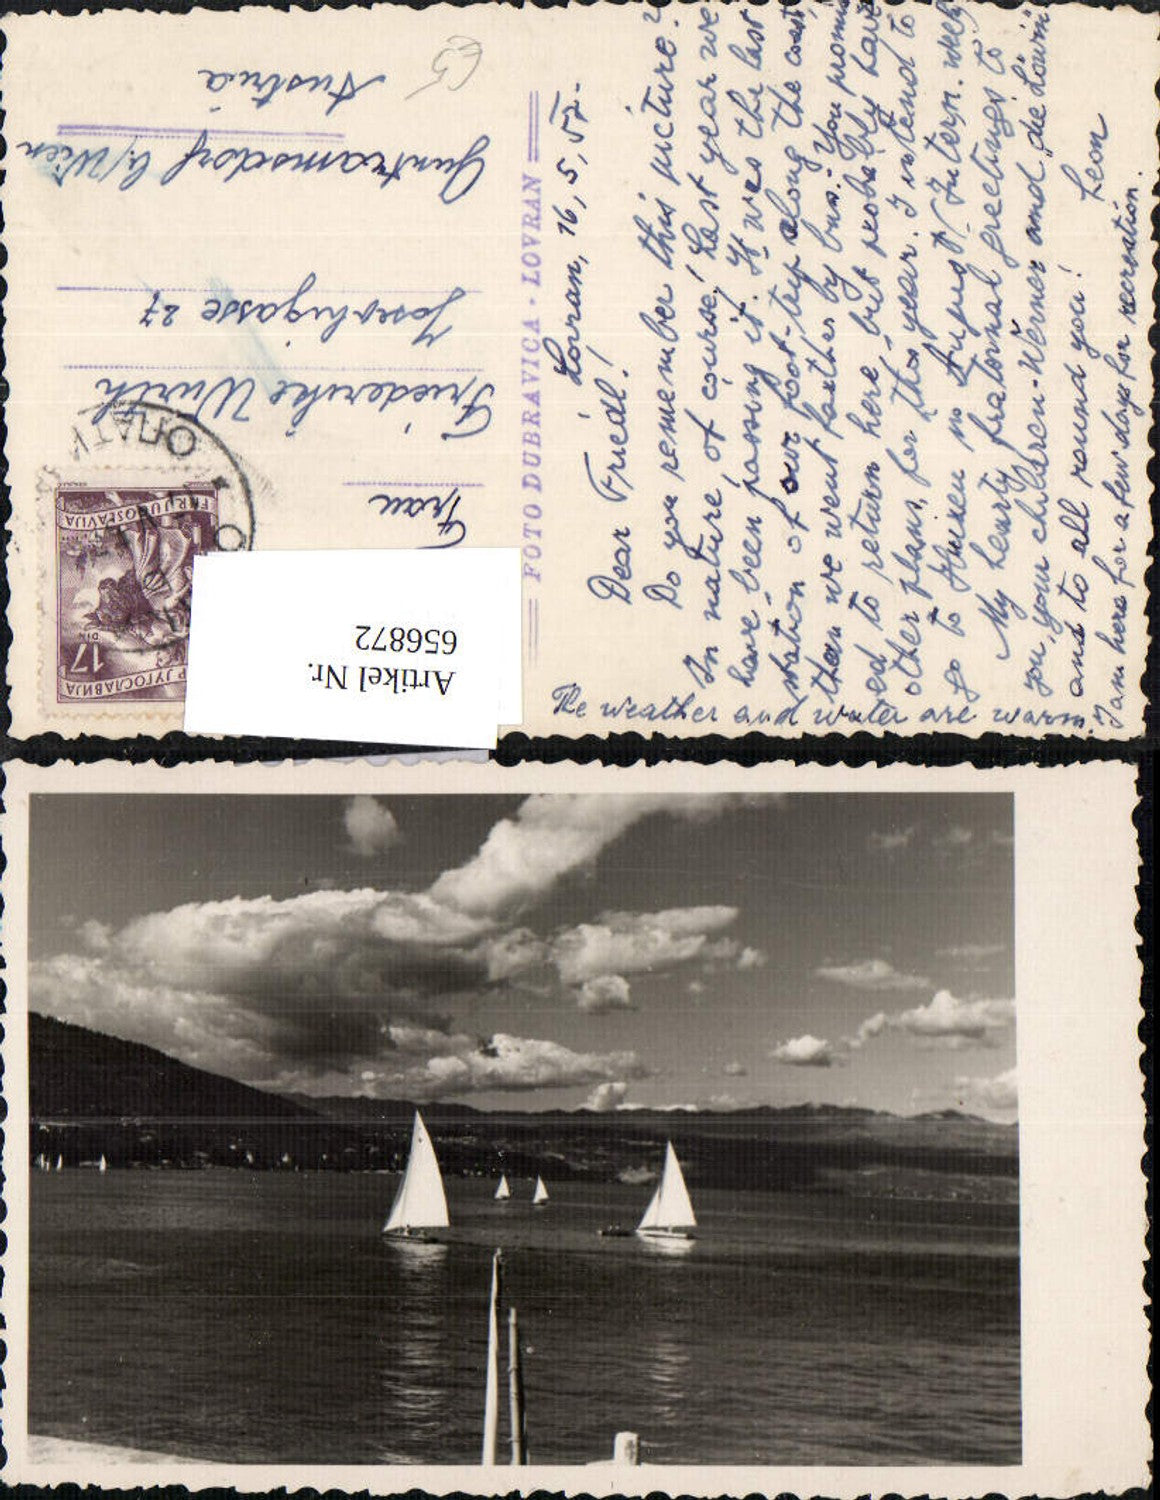 Lovran, 16, 5, 57.
Dear Friedl!
Do you remember this picture?
In nature, of course! Last year we
have been passing it. It was the last
station of our foot-trip along the coast,
then we went farther by bus. You promis
ed to return here, but probably have
other plans, for this year. I intend to
go to in August (Intern. week)
My hearty fraternal greetings to
you, your children - Werner and "die Löwin"
and to all round you! Leon
I am here for a few days for recreation.
The weather and water are warm.
FOTO DUBRAVICA · LOVRAN
Frau
Friederike Wurth
Josephigasse 27
Guntramsdorf b/Wien
Austria
65
ОПАТИ
FNR JUGOSLAVIJA
17
DIN
ФНР ЈУГОСЛАВИЈА
Artikel Nr.
656872